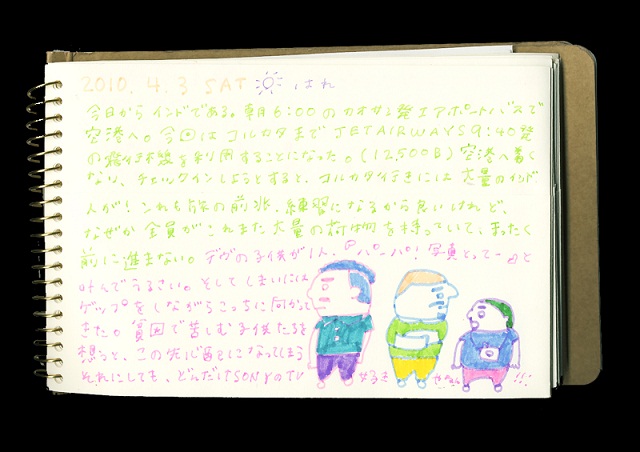 2010. 4. 3 SAT はれ
今日からインドである。朝6:00のカオサン発エアポートバスで
空港へ。今回はコルカタまでJETAIRWAYS 9:40発
の飛行機を利用することになった。(12,500B) 空港へ着く
なり、チェックインしようとすると、コルカタ行きには大量のインド
人が! これも旅の前兆、練習になるから良いけれど、
なぜか全員がこれまた大量の荷物を持っていて、まったく
前に進まない。デヴの子供が1人、『パーパ! 写真とってー』と
叫んでうるさい。そしてしまいには
ゲップをしながらこっちに向かって
きた。貧困で苦しむ子供たちを
想うと、この先心配になってしまう
それにしても、どんだけSONYのTV
好き やねん!!!